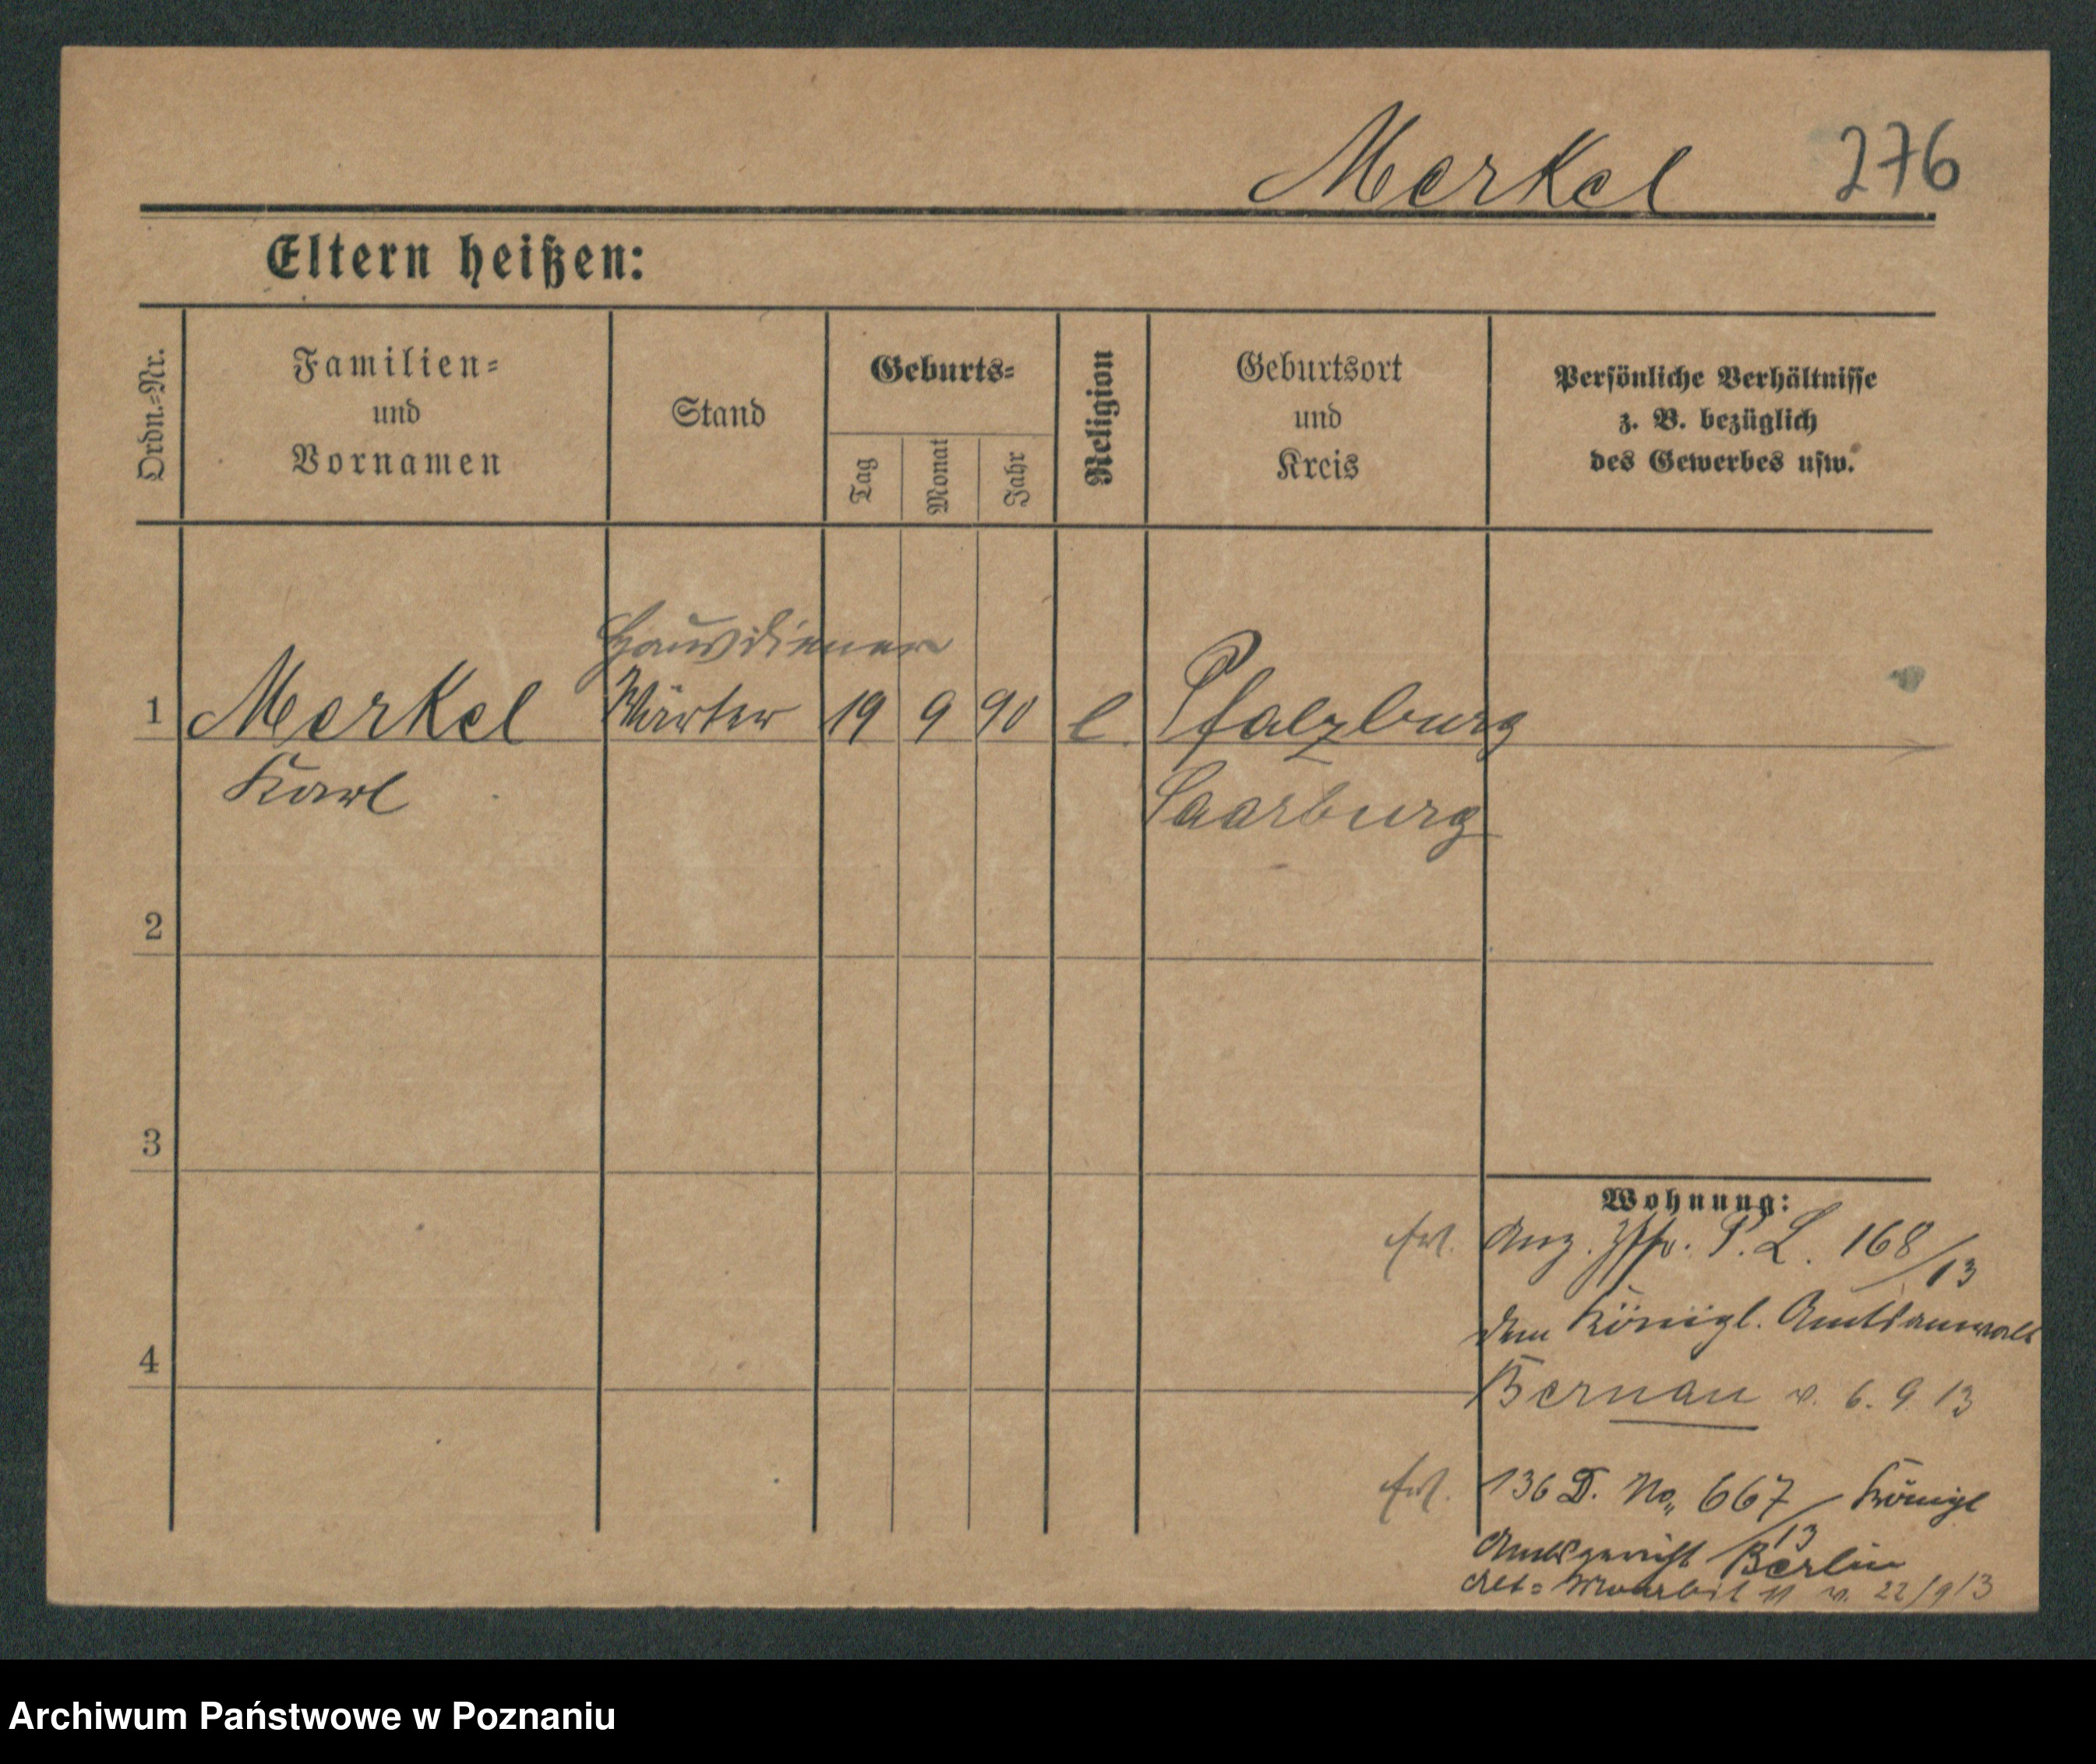 Merkel 276
Eltern heißen:
Ordn.-Nr.
Familien-
und
Vornamen
Stand
Geburts-
Tag
Monat
Jahr
Religion
Geburtsort
und
Kreis
Persönliche Verhältnisse
z. B. bezüglich
des Gewerbes usw.
Hausdiener
1 Merkel Wärter 19 9 90 e. Pfalzburg
Karl Saarburg
2
3
Wohnung:
Anz. P. L. 168/13
dem Königl. Amtsanwalt
4
Bernau v. 6. 9 13
136 D. No 667/13 Königl
Amtsgericht Berlin
Alt= Moabit 11 v. 22/9 13
Archiwum Państwowe w Poznaniu